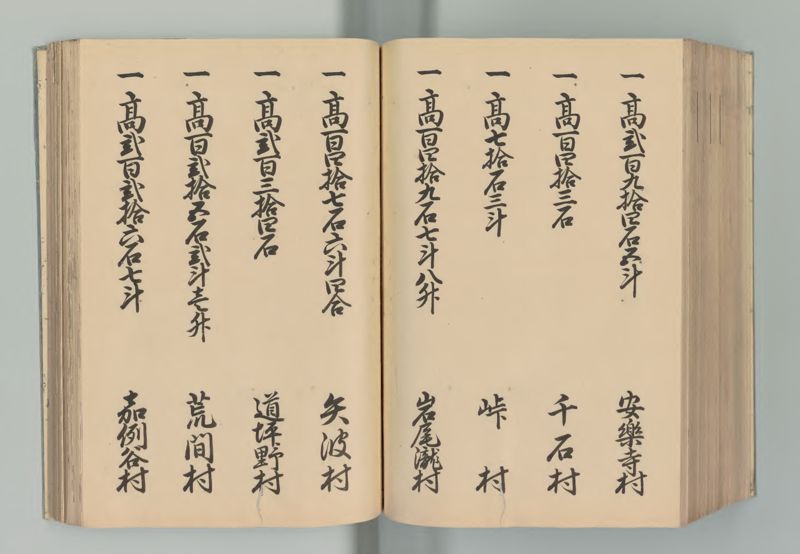 一高弐百九拾四石五斗 安樂寺村
一高百四拾三石 千石村
一高七拾石三斗 峠村
一高百四拾九石七斗八升 岩尾瀧村
一高百四拾七石六斗四合 矢波村
一高弐百三拾四石 道坪野村
一高百弐拾五石弐斗壱升 荒間村
一高弐百弐拾六石七斗 嘉例谷村